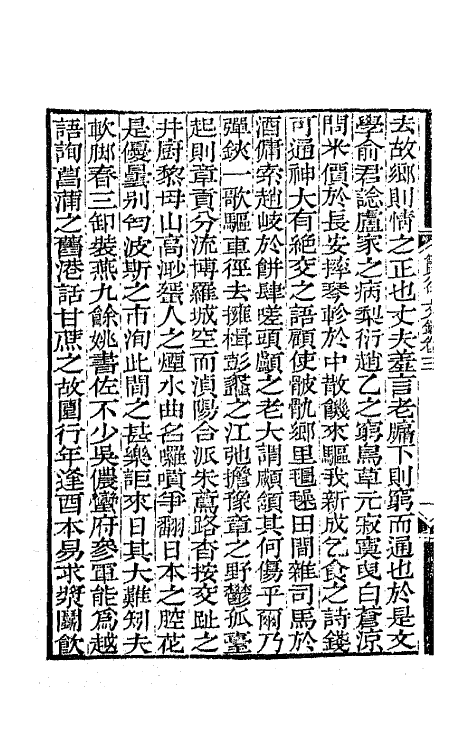 去故鄉則情之正也丈夫羞言老牖下則窮而通也於是文
學俞君諗盧家之病梨衍趙乙之窮鳥草元寂寞臾白蒼涼
問米價於長安摔琴軫於中散饑來驅我新成乞食之詩錢
可通神大有絕交之語顧使骯髒鄉里氍毹田間雜司馬於
酒傭索趙岐於餅肆嗟頭顱之老大謂顑頷其何傷乎爾乃
彈鋏一歌驅車徑去擁楫彭蠡之江弛擔豫章之野鬱孤臺
起則章貢分流博羅城空而滇陽合派朱鳶路杳按交趾之
井廚黎母山高渺蜑人之煙水曲名囉嗊爭翻日本之腔花
是優曇別句波斯之市洵此間之甚樂詎來日其大難矧夫
軟腳春三卸裝燕九餘姚書佐不少吳儂蠻府參軍能為越
語詢菖蒲之舊港話甘蔗之故園行年逢酉本易求漿鬭飲
三